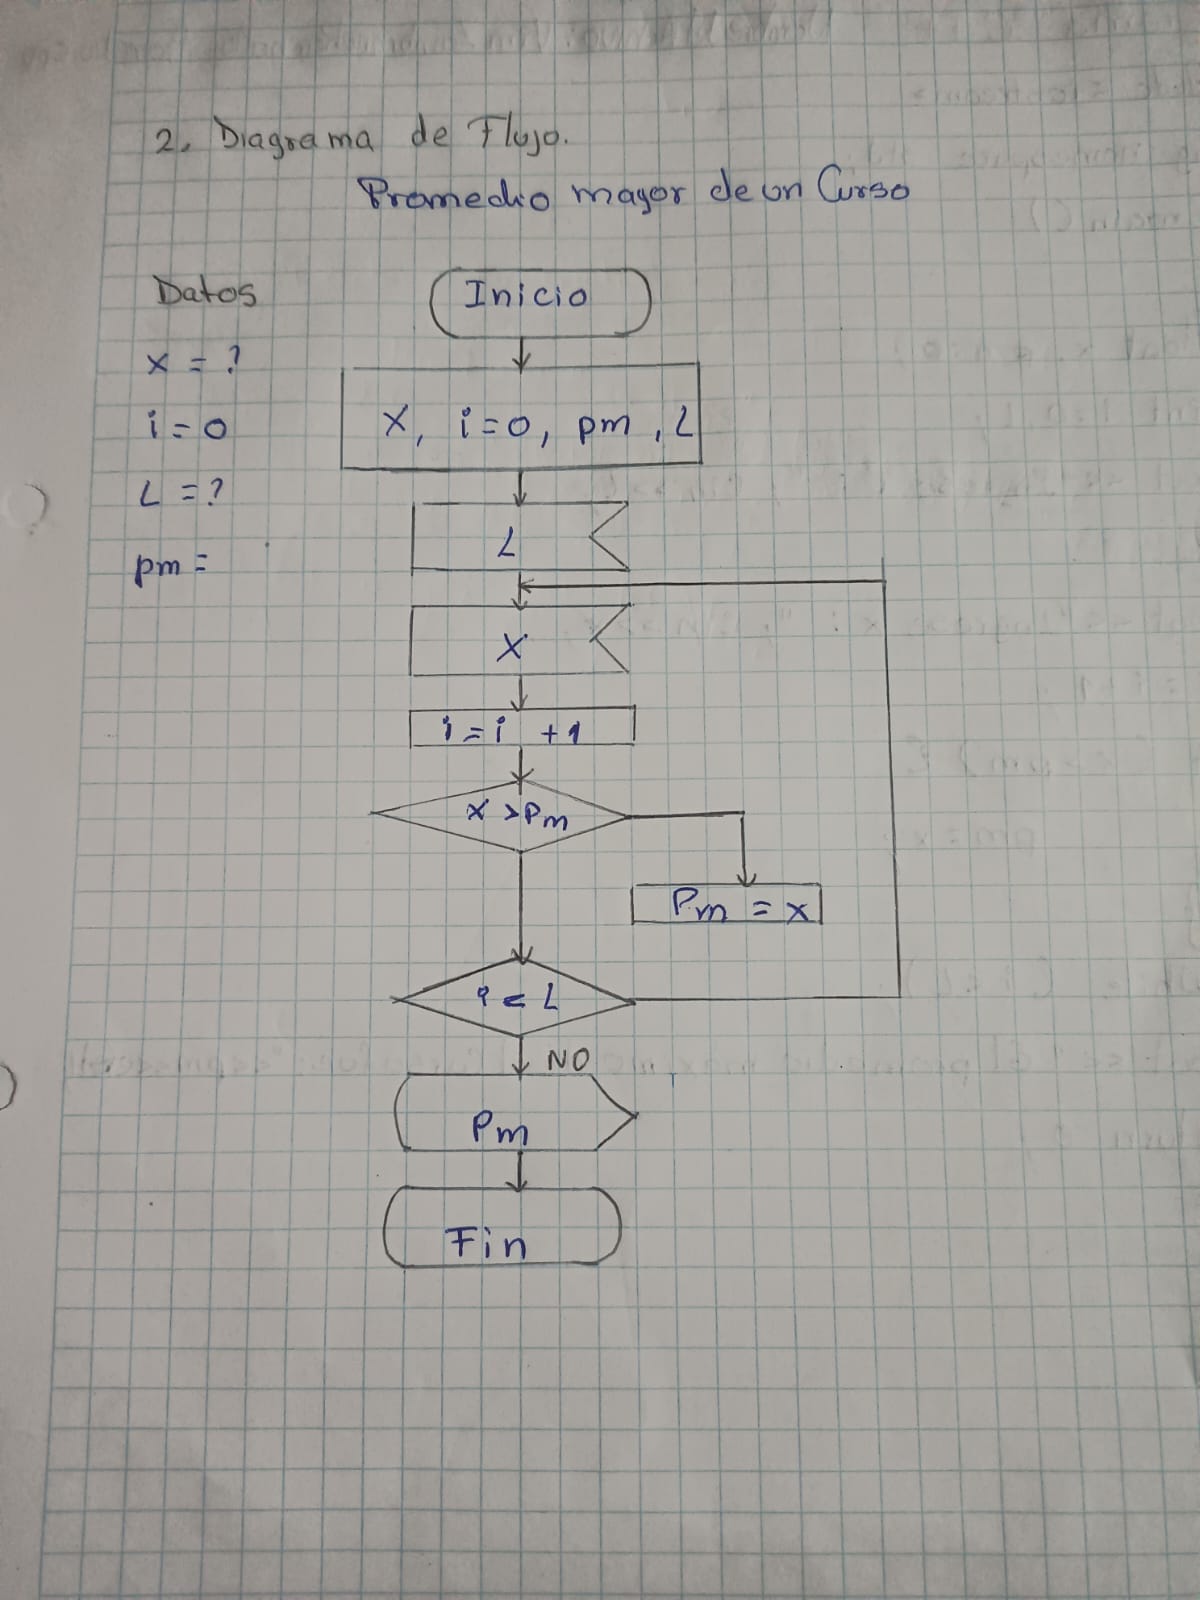 2. Diagrama de Flujo.
Promedio mayor de un Curso
Datos
x = ?
i = 0
L = ?
pm =
Inicio
X, i=0, pm, L
L
X
i = i + 1
x > Pm
Pm = x
i < L
NO
Pm
Fin